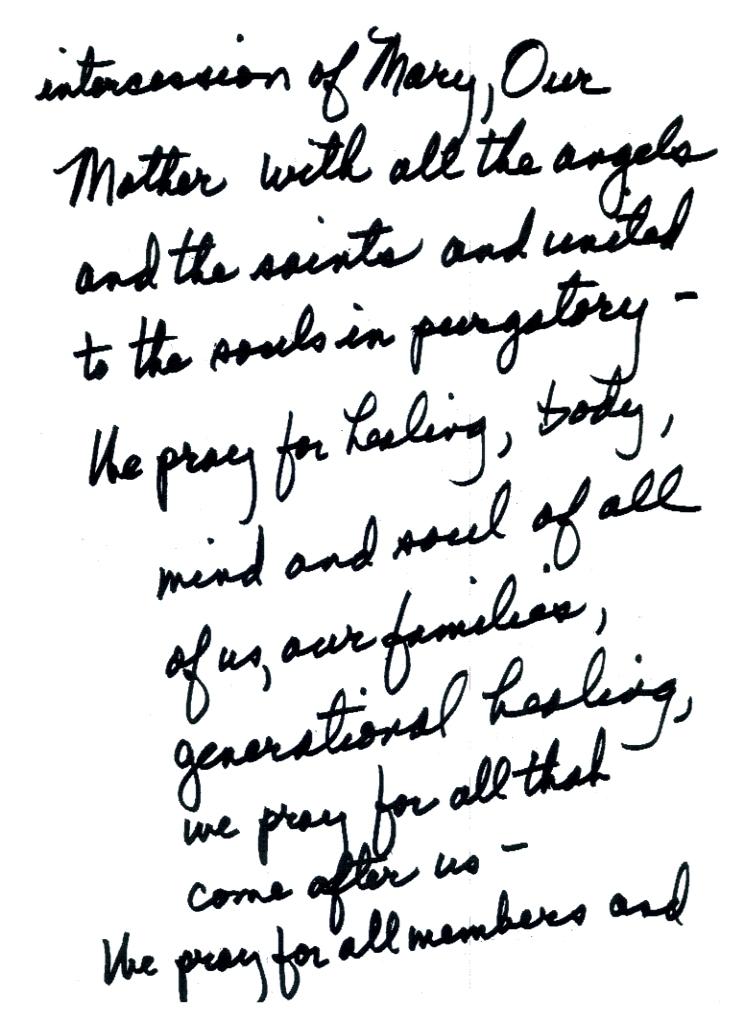 intercession of Mary, Our
Mother with all the angels
and the saints and united
to the souls in purgatory -
We pray for healing, body,
mind and soul of all
of us, our families,
generational healing,
we pray for all that
come after us -
We pray for all members and